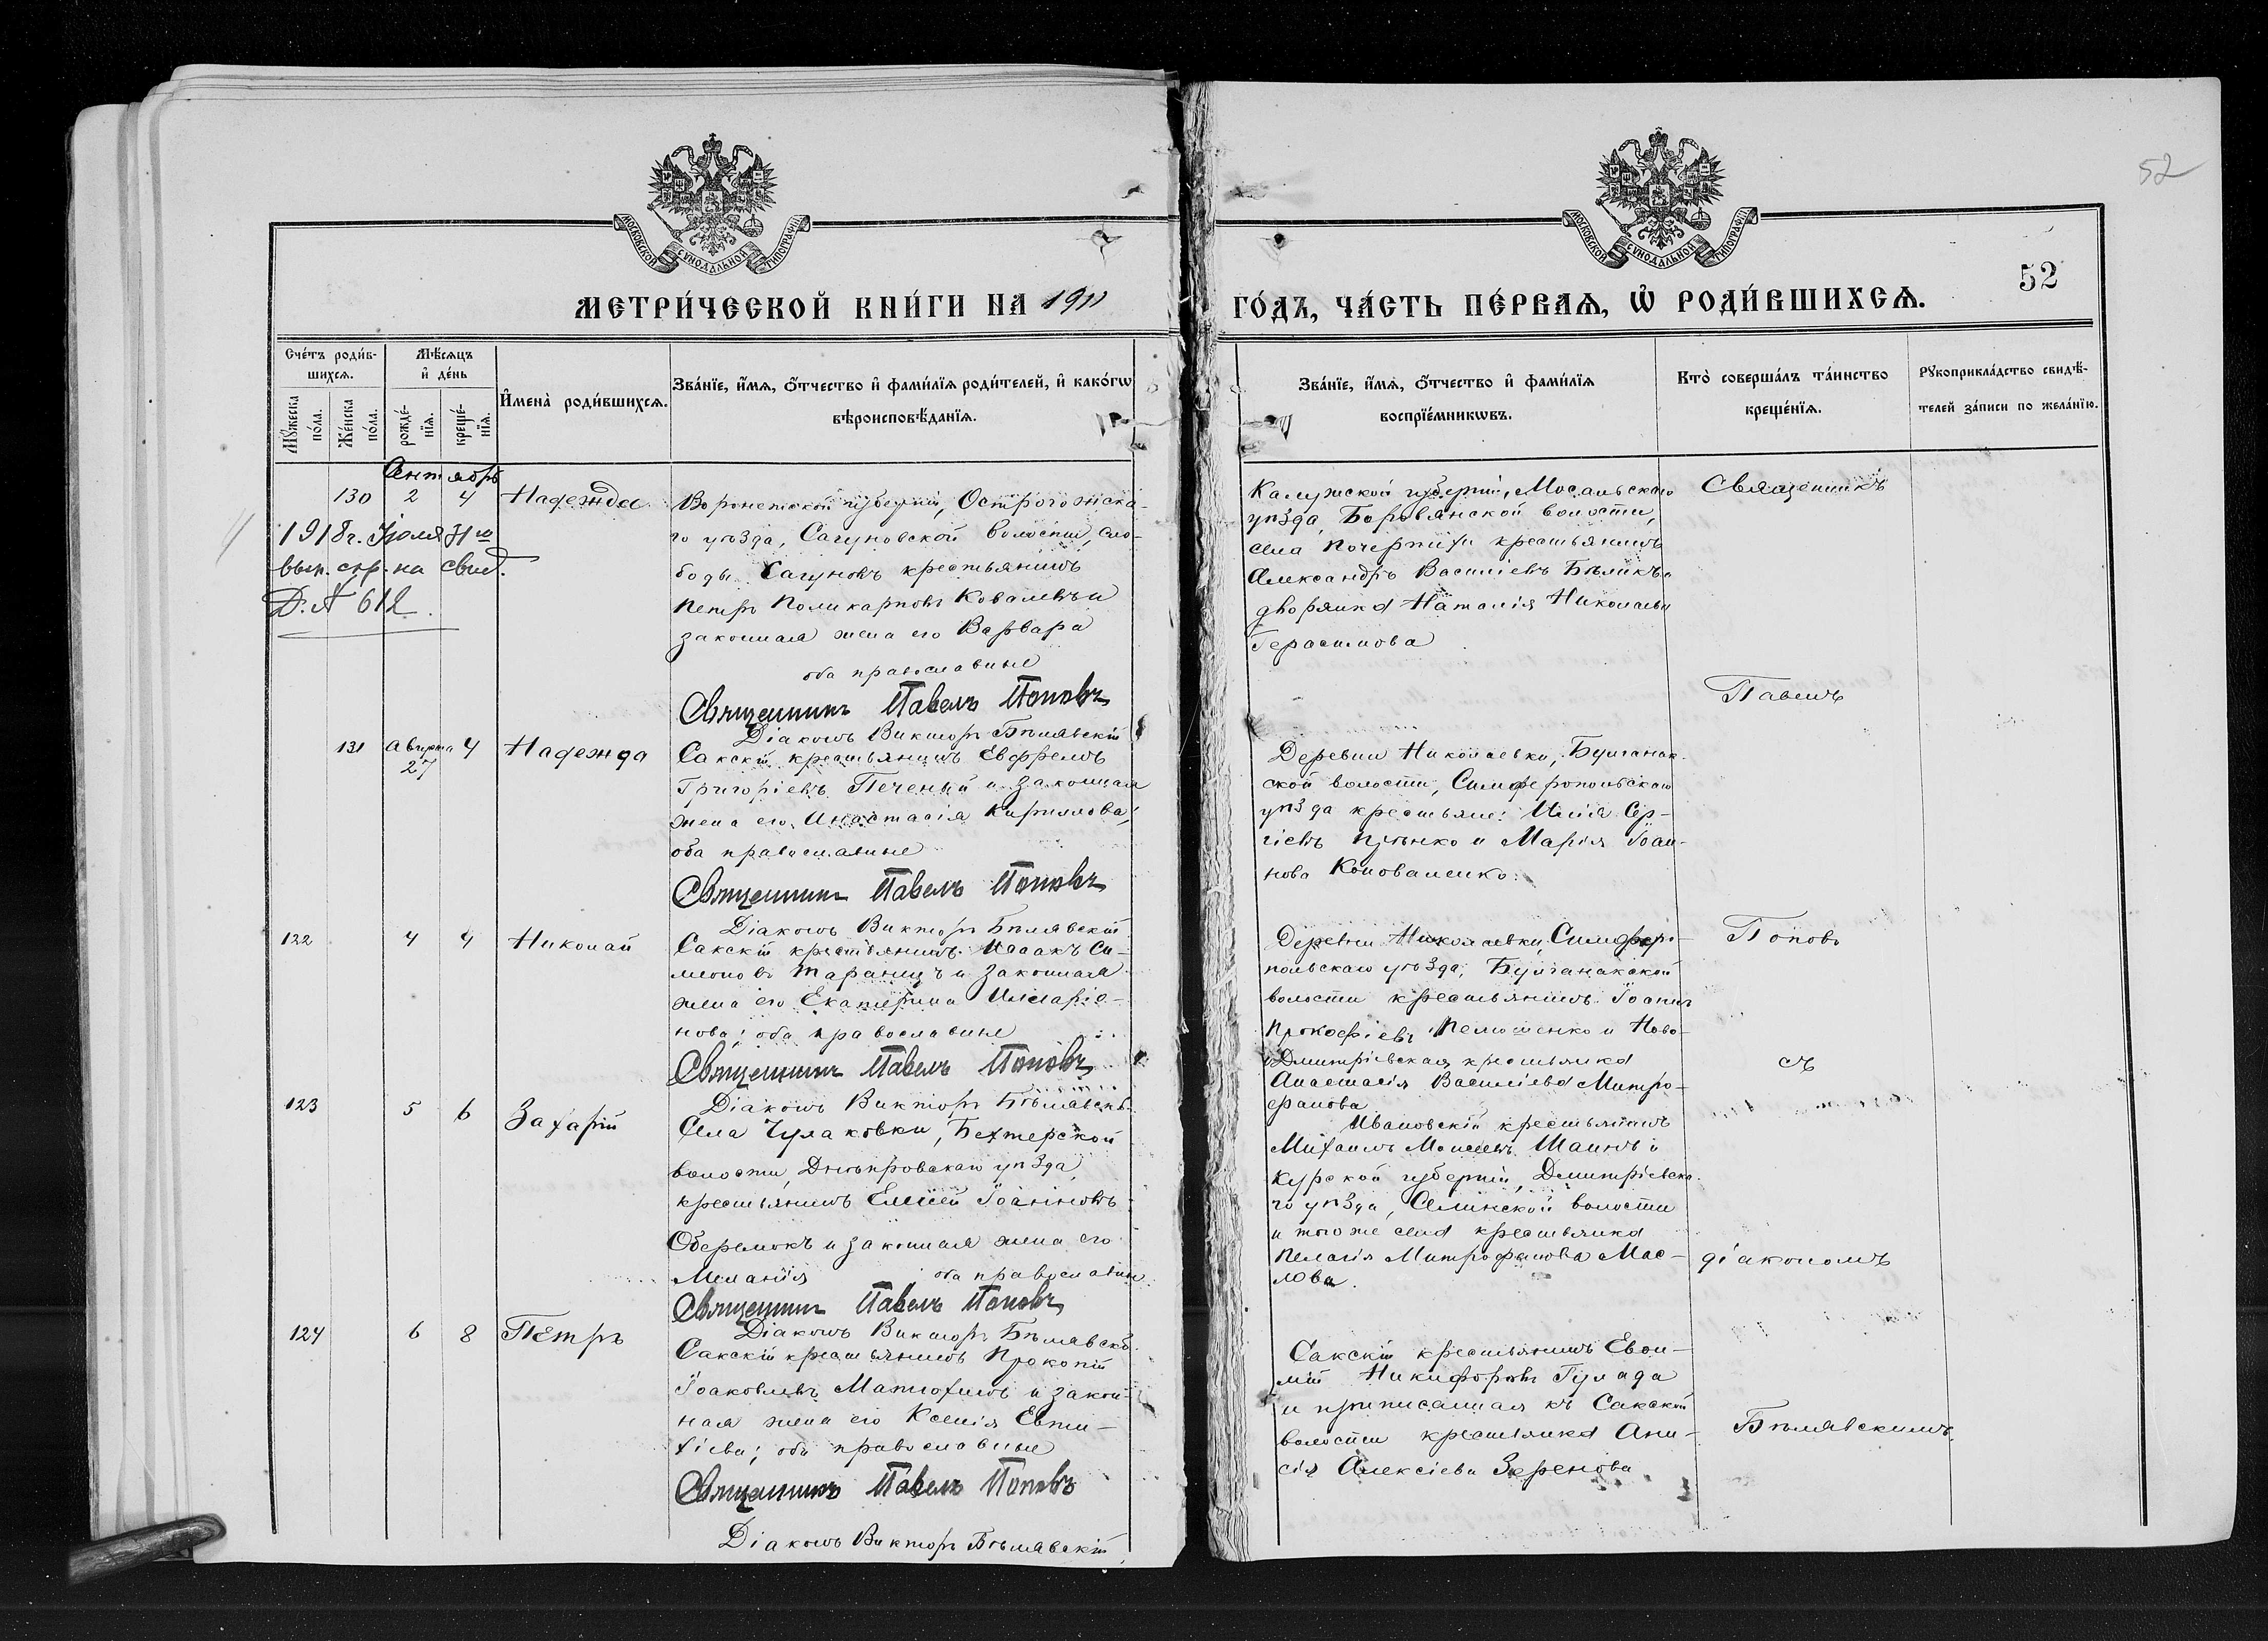 52
МОСКОВСКОЙ СѴНОДАЛЬНОЙ ТИПОГРАФІИ
МОСКОВСКОЙ СѴНОДАЛЬНОЙ ТИПОГРАФІИ
52
МЕТРИ́ЧЕСКОЙ КНИ́ГИ НА 1911
ГО́ДЪ, ЧА́СТЬ ПЕ́РВАѦ, Ѡ҆ РОДИ́ВШИХСѦ.
Сче́тъ роди́в-
шихсѧ.
Мꙋ́жеска по́ла.
Же́нска по́ла.
Мѣ́сѧцъ
и҆ де́нь
рожде́-нїѧ.
креще́-нїѧ.
И҆мена̀ роди́вшихсѧ.
Зва́нїе, и҆́мѧ, ѻ҆́тчество и҆ фами́лїѧ роди́телей, и҆ како́гѡ
вѣроисповѣ́данїѧ.
Зва́нїе, и҆́мѧ, ѻ҆́тчество и҆ фами́лїѧ
воспрїе́мникѡвъ.
Кто̀ соверша́лъ та́инство
креще́нїѧ.
Рꙋкоприкла́дство свидѣ́-
телей за́писи по жела́нїю.
Сентябрь
130 2 4 Надежда
1918 г. Іюля 31 го
вып. спр. на свид.
Д. № 612.
Воронежской губерніи, Острогожска-
го уѣзда, Сагуновской волости, сло-
боды Сагуновъ крестьянинъ
Петръ Поликарповъ Ковалевъ и
законная жена его Варвара
оба православные
Священникъ Павелъ Поповъ
Діаконъ Викторъ Бѣлявскій
Калужской губерніи, Мосальскаго
уѣзда, волости,
села крестьянинъ
Александръ Василіевъ Бѣликъ и
дворянка Наталія Николаева
Герасимова
Священникъ
Павелъ
131 Августа 27 4 Надежда
Сакскій крестьянинъ Евфремъ
Григоріевъ Печеный и законная
жена его Анастасія Кириллова;
оба православные
Священникъ Павелъ Поповъ
Діаконъ Викторъ Бѣлявскій
Деревни Николаевки, Булганак-
ской волости, Симферопольскаго
уѣзда крестьяне: Илія Сер-
гіевъ и Марія Іоан-
нова Коноваленко.
122 4 4 Николай
Сакскій крестьянинъ Исаакъ Си-
меоновъ Таранецъ и законная
жена его Екатерина Иларіо-
нова; оба православные
Священникъ Павелъ Поповъ
Діаконъ Викторъ Бѣлявскій
Деревни Николаевки, Симферо-
польскаго уѣзда, Булганакской
волости крестьянинъ Іоаннъ
Прокофіевъ и Ново-
Дмитріевская крестьянка
Анастасія Василіева Митро-
фанова
Поповъ
съ
123 5 6 Захарій
Села Чулаковки, Бехтерской
волости, Днѣпровскаго уѣзда
крестьянинъ Елисей Іоанновъ
Оберемокъ и законная жена его
Меланія оба православные
Священникъ Павелъ Поповъ
Діаконъ Викторъ Бѣлявскій
Ивановскій крестьянинъ
Михаилъ и
Курской губерніи, Дмитріевска-
го уѣзда, Селинской волости
и того же села крестьянка
Пелагія Митрофанова Мас-
лова.
діакономъ
124 6 8 Петръ
Сакскій крестьянинъ Прокопій
Іоаковлевъ Матюхинъ и закон-
ная жена его Ксенія Евти-
хіева; оба православные
Священникъ Павелъ Поповъ
Діаконъ Викторъ Бѣлявскій
Сакскій крестьянинъ Евѳи-
мій Никифоровъ Гулада
и приписанная къ Сакской
волости крестьянка Ани-
сія Алексіева Зеренова
Бѣлявскимъ.